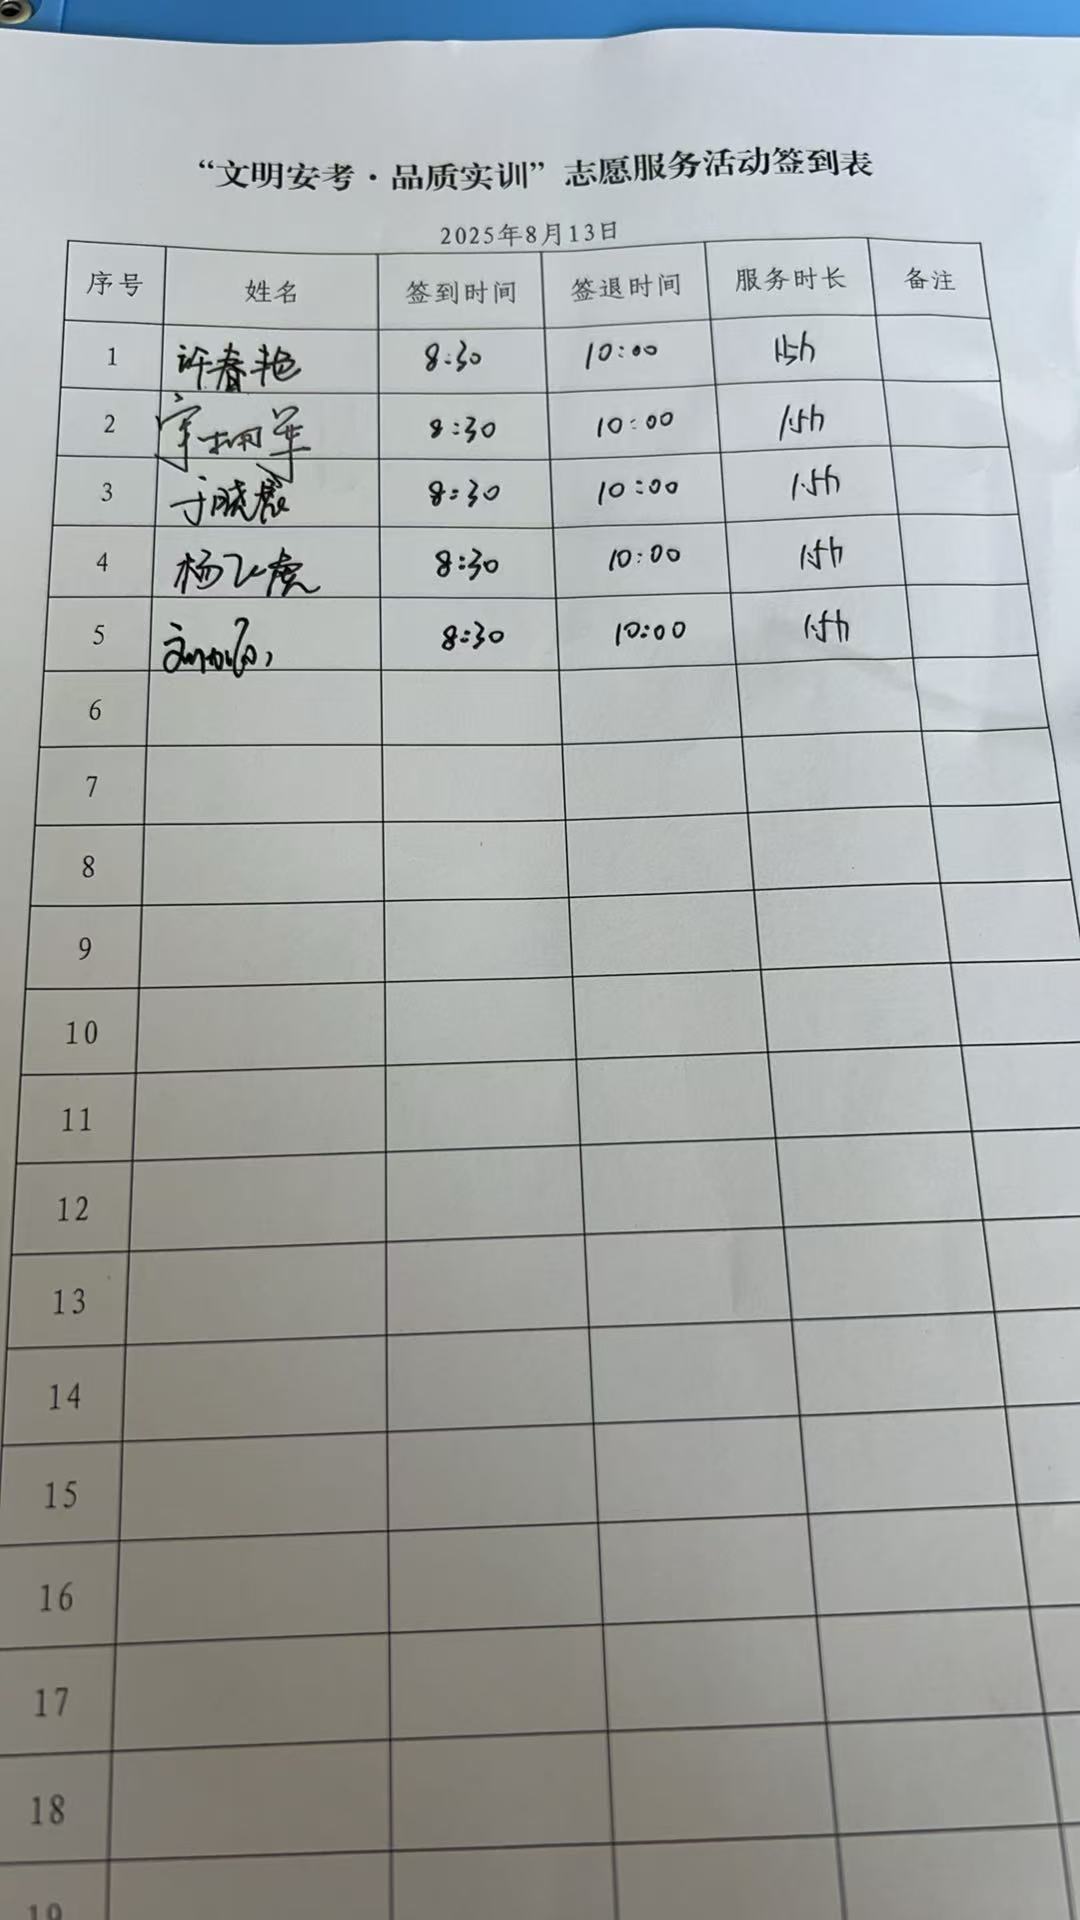 “文明安考·品质实训”志愿服务活动签到表
2025年8月13日
序号 姓名 签到时间 签退时间 服务时长 备注
1 许春艳 8:30 10:00 1.5h
2 8:30 10:00 1.5h
3 于晓晨 8:30 10:00 1.5h
4 杨飞虎 8:30 10:00 1.5h
5 8:30 10:00 1.5h
6
7
8
9
10
11
12
13
14
15
16
17
18
19